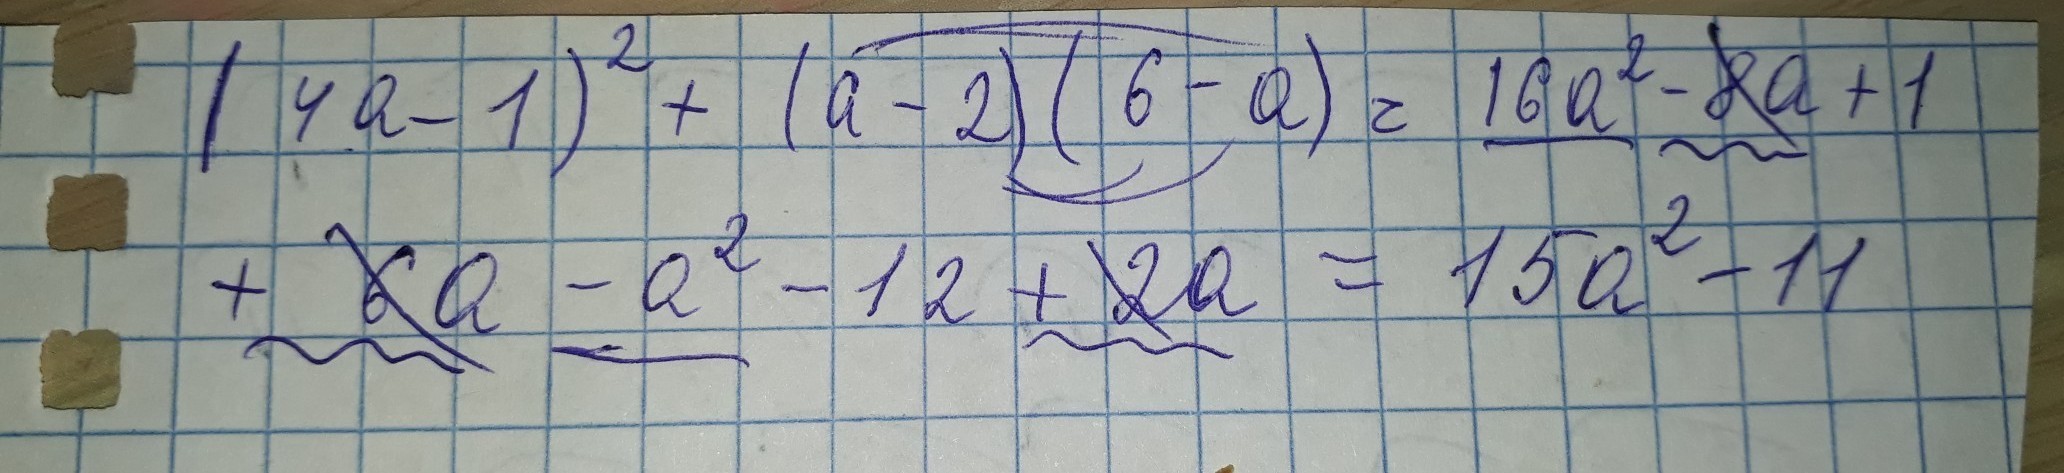 (4a-1)² + (a-2)(6-a) = 16a² - 8a + 1
+ 6a - a² - 12 + 2a = 15a² - 11